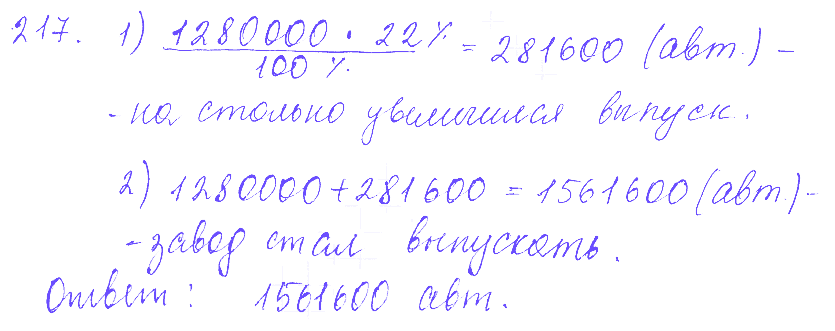 217. 1) 1280000 · 22% / 100 % = 281600 (авт.) -
- на столько увеличился выпуск.
2) 1280000 + 281600 = 1561600 (авт.) -
- завод стал выпускать.
Ответ: 1561600 авт.